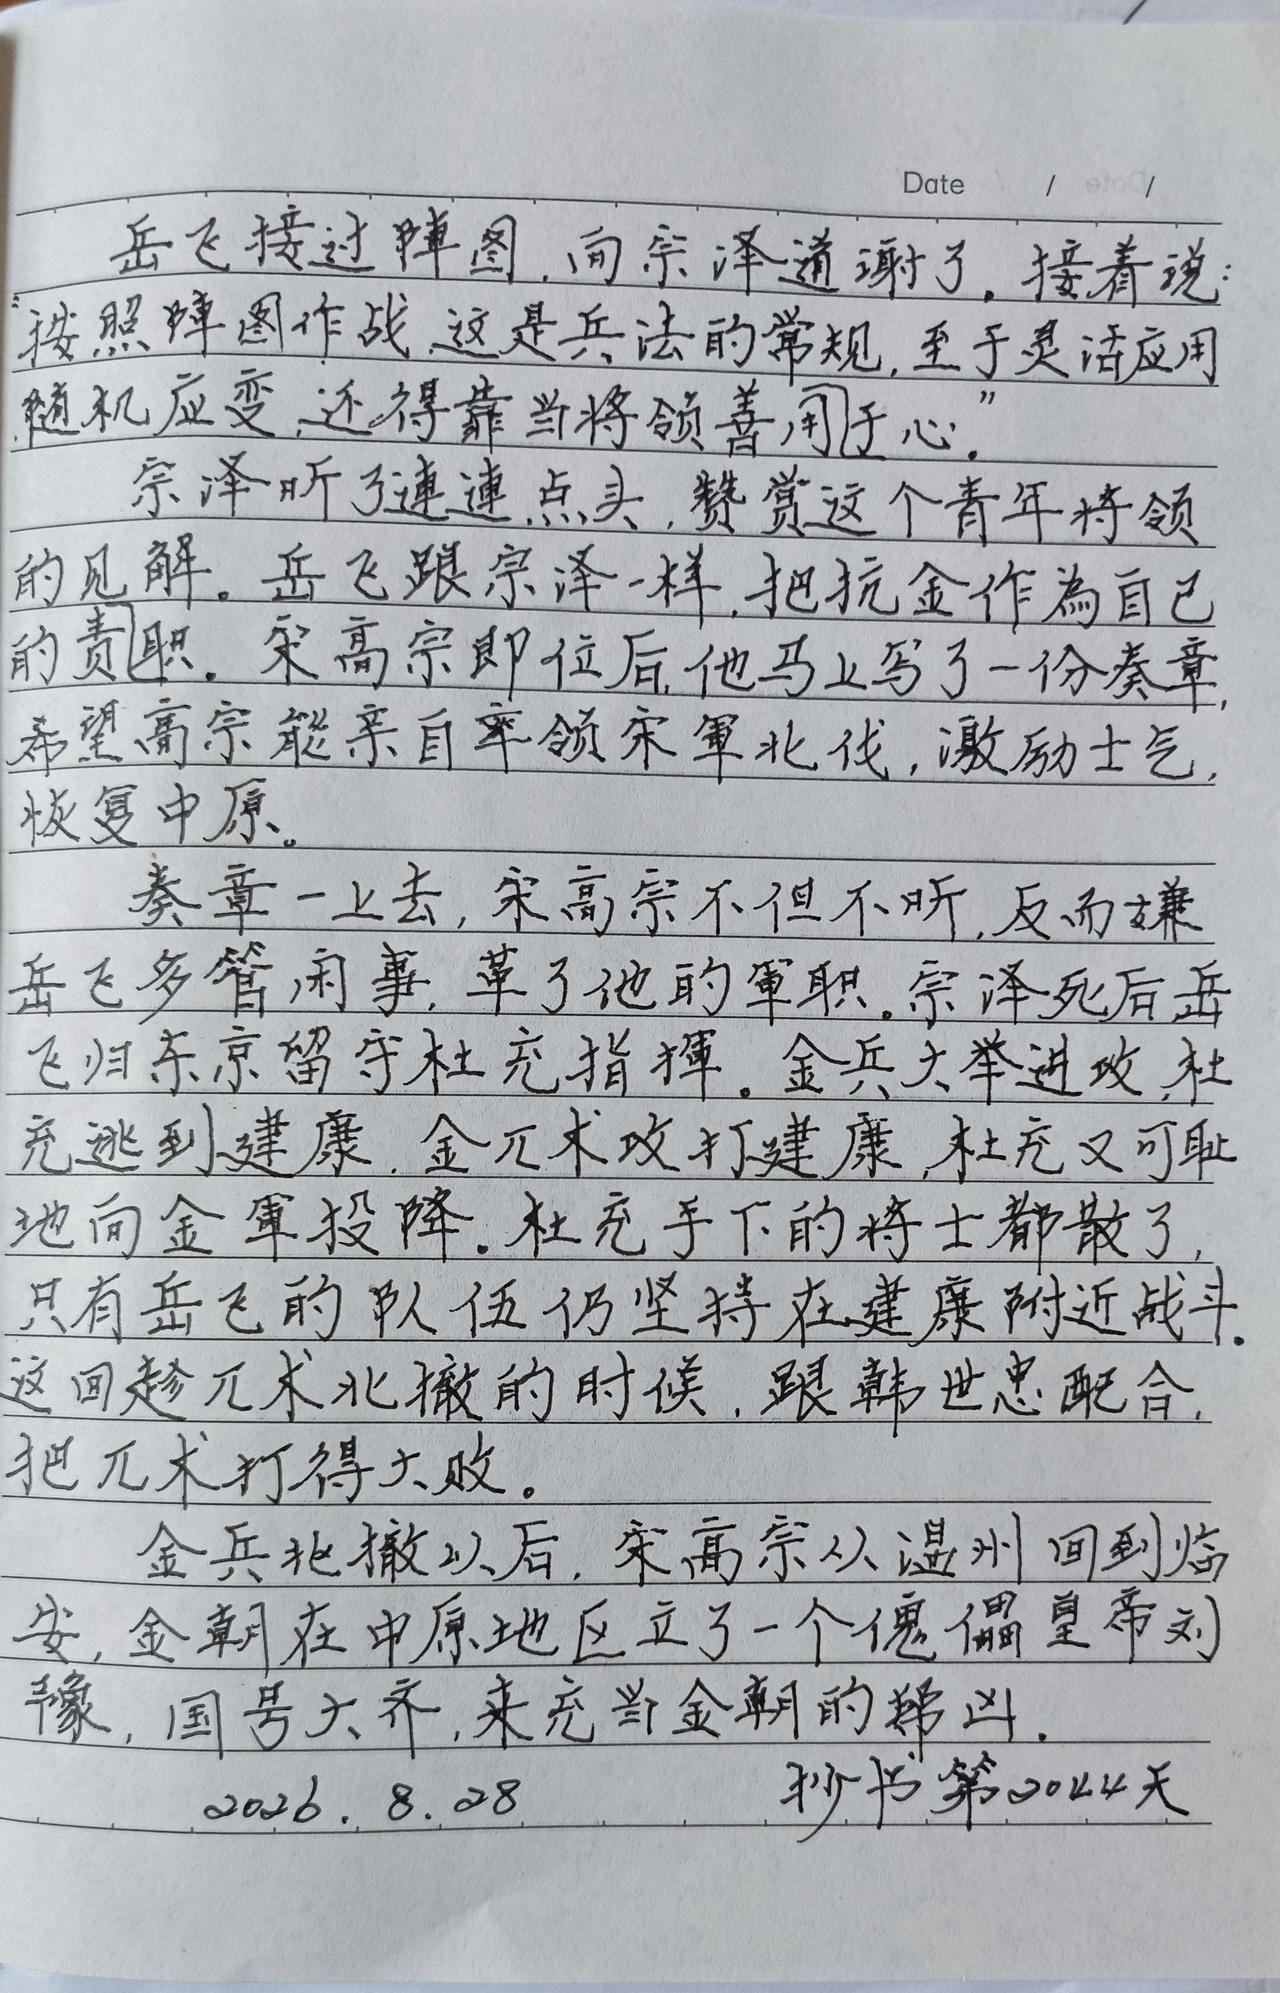 Date / /
岳飞接过陣图，向宗泽道谢了。接着说：
“按照陣图作战，这是兵法的常规，至于灵活应用
随机应变，还得靠当将领善用于心。”
宗泽听了連連点头，赞赏这个青年将领
的见解。岳飞跟宗泽一样，把抗金作為自己
的责职。宋高宗即位后，他马上写了一份奏章，
希望高宗能亲自率领宋軍北伐，激励士气，
恢复中原。
奏章一上去，宋高宗不但不听，反而嫌
岳飞多管闲事，革了他的軍职。宗泽死后岳
飞归东京留守杜充指揮。金兵大举进攻，杜
充逃到建康，金兀术攻打建康，杜充又可耻
地向金軍投降。杜充手下的将士都散了，
只有岳飞的队伍仍坚持在建康附近战斗。
这回趁兀术北撤的时候，跟韩世忠配合，
把兀术打得大败。
金兵北撤以后，宋高宗从温州回到临
安，金朝在中原地区立了一个傀儡皇帝刘
豫，国号大齐，来充当金朝的帮凶。
2026.8.28 抄书第2044天